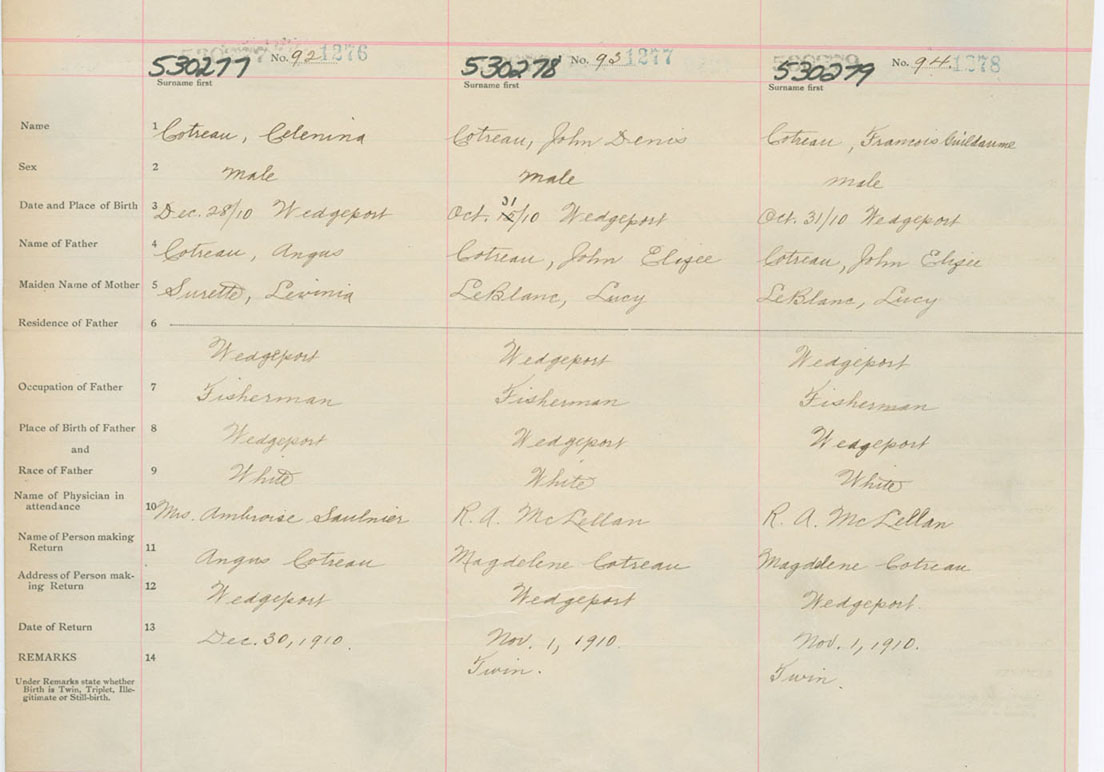 530277 No. 92 1276 530278 No. 93 1277 530279 No. 94. 1278
Surname first Surname first Surname first
Name 1 Cotreau, Celenina Cotreau, John Denis Cotreau, Francois Guildaume
Sex 2 male male male
Date and Place of Birth 3 Dec. 28/10 Wedgeport Oct. 31/10 Wedgeport Oct. 31/10 Wedgeport
Name of Father 4 Cotreau, Angus Cotreau, John Elizee Cotreau, John Elizee
Maiden Name of Mother 5 Surette, Levinia LeBlanc, Lucy LeBlanc, Lucy
Residence of Father 6
Wedgeport Wedgeport Wedgeport
Occupation of Father 7 Fisherman Fisherman Fisherman
Place of Birth of Father 8 Wedgeport Wedgeport Wedgeport
and
Race of Father 9 White White White
Name of Physician in
attendance 10 Mrs. Ambroise Saulnier R. A. McLellan R. A. McLellan
Name of Person making
Return 11 Angus Cotreau Magdelene Cotreau Magdelene Cotreau
Address of Person mak-
ing Return 12 Wedgeport Wedgeport Wedgeport.
Date of Return 13 Dec. 30, 1910. Nov. 1, 1910. Nov. 1, 1910.
REMARKS 14 Twin. Twin.
Under Remarks state whether
Birth is Twin, Triplet, Ille-
gitimate or Still-birth.